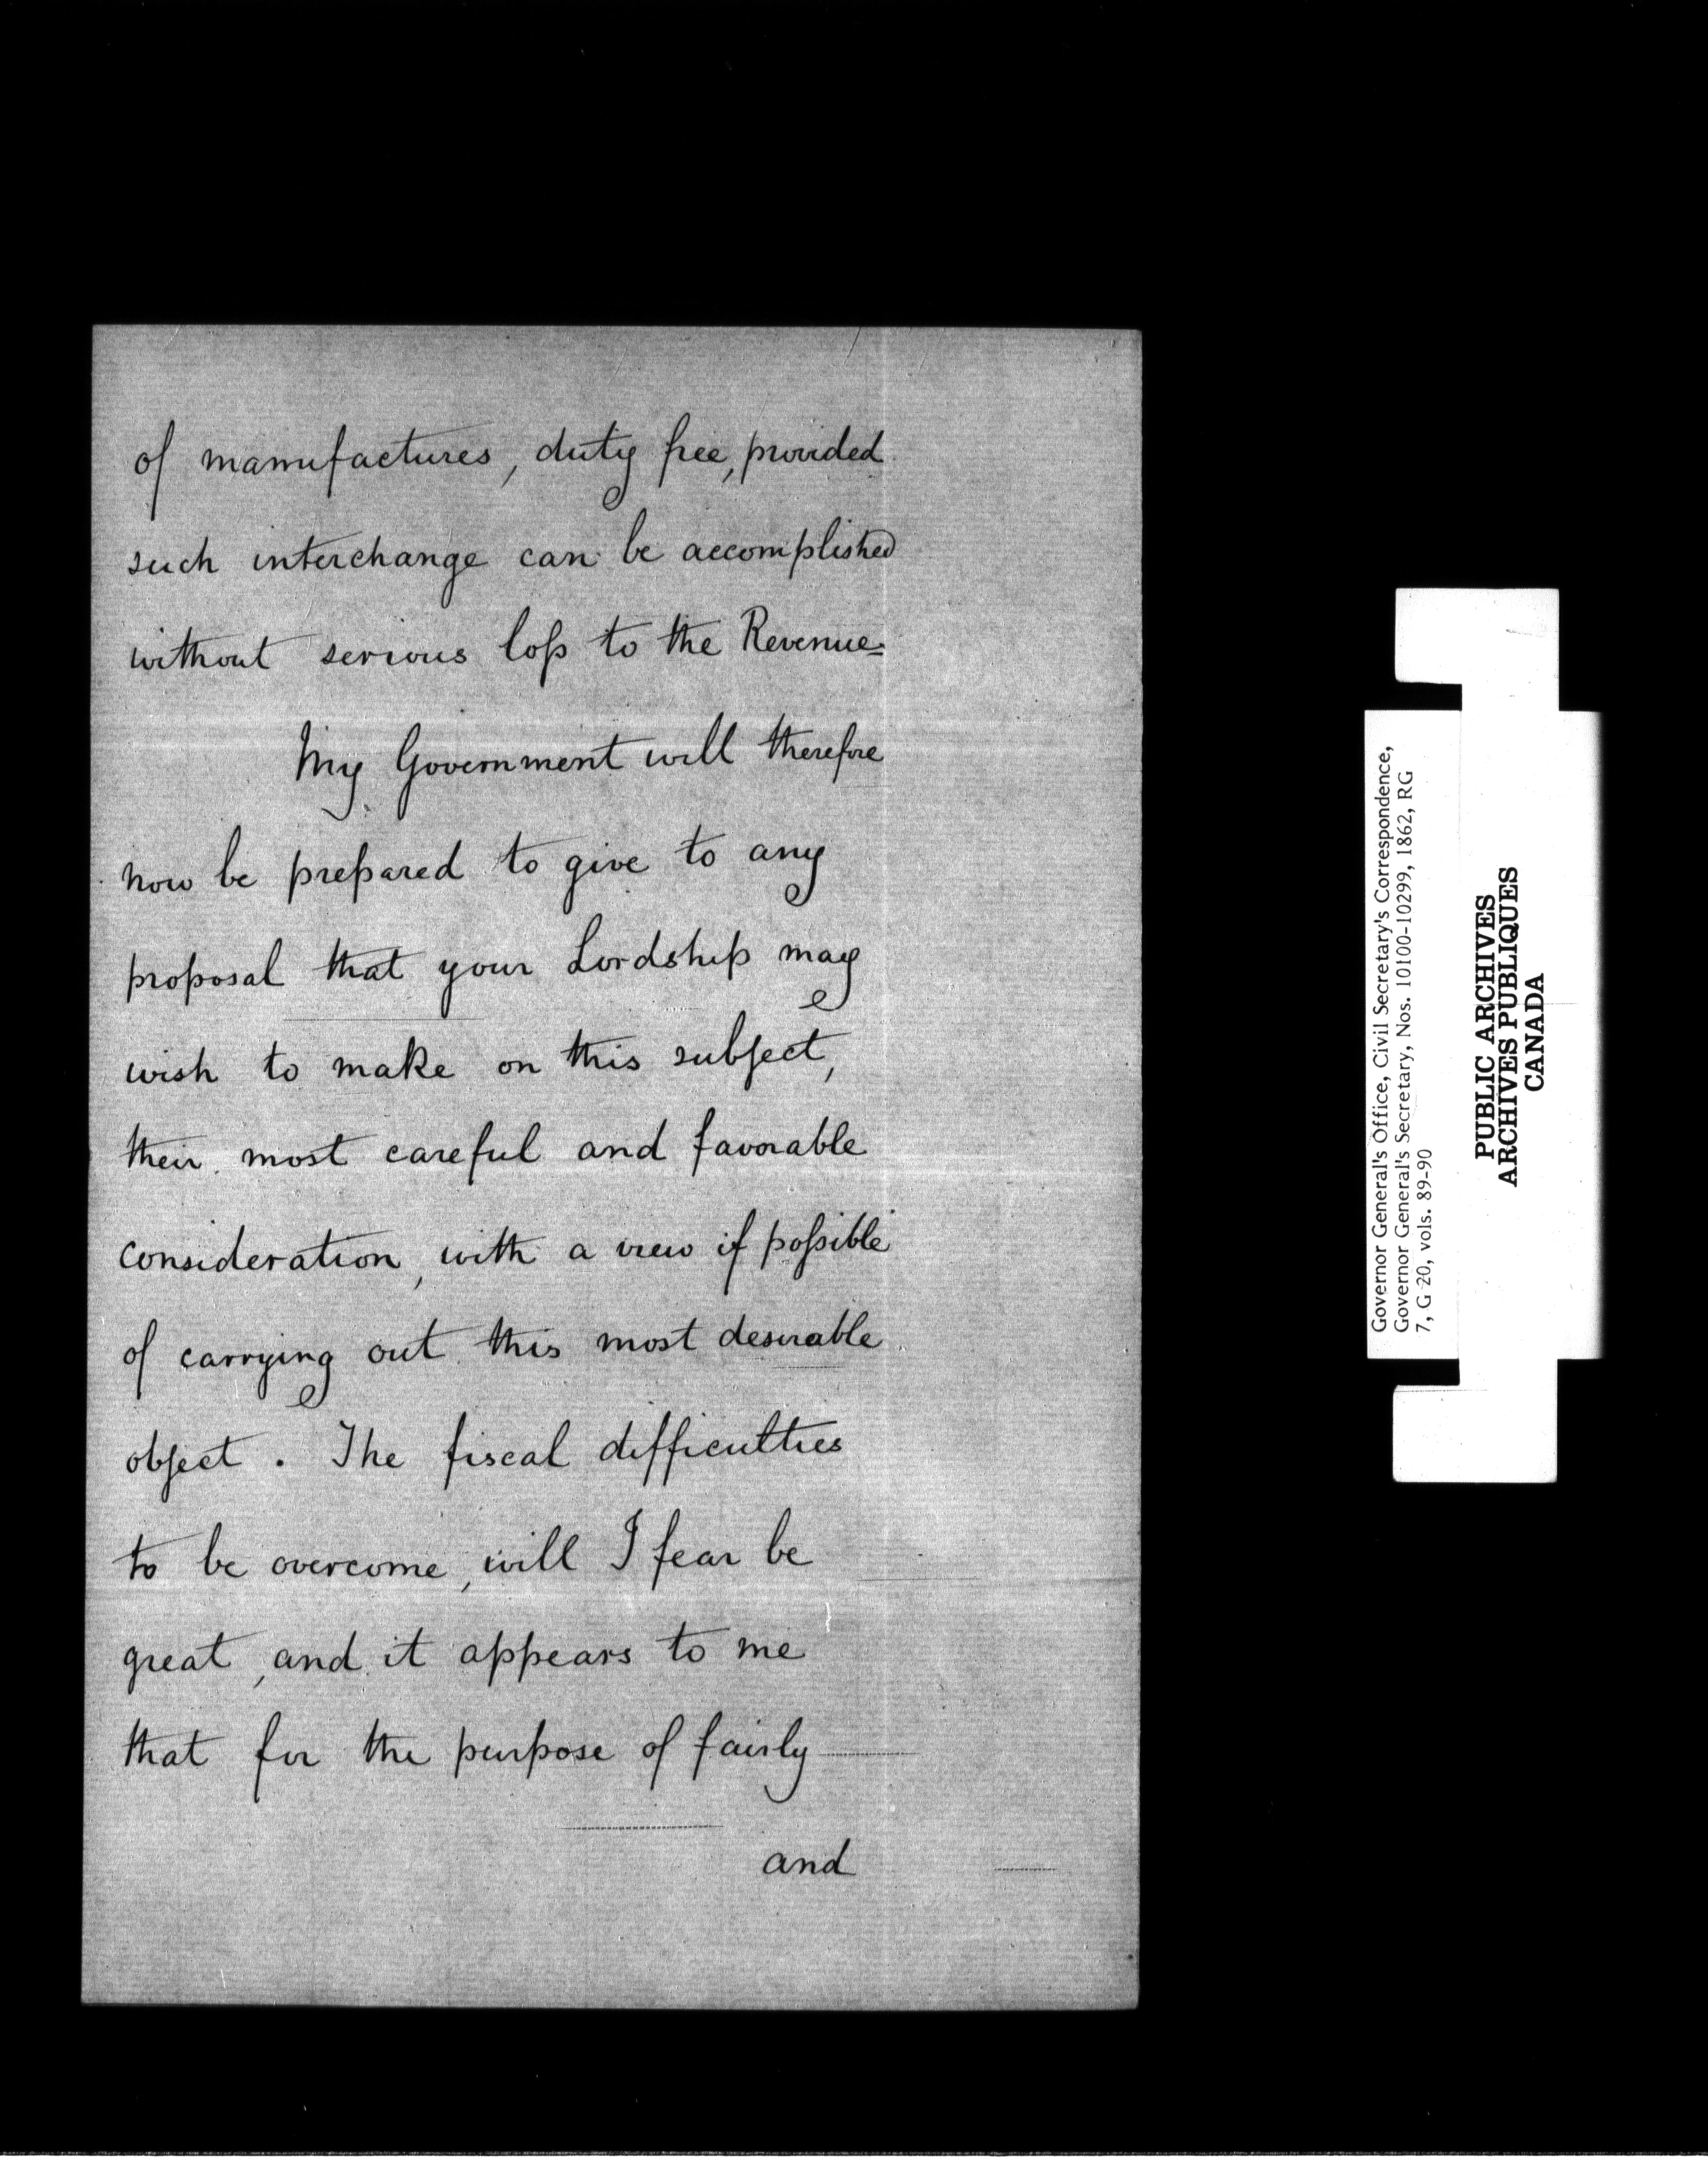 of manufactures, duty free, provided
such interchange can be accomplished
without serious loss to the Revenue.
My Government will therefore
now be prepared to give to any
proposal that your Lordship may
wish to make on this subject,
their most careful and favorable
consideration, with a view if possible
of carrying out this most desirable
object. The fiscal difficulties
to be overcome, will I fear be
great, and it appears to me
that for the purpose of fairly
and
Governor General's Office, Civil Secretary's Correspondence,
Governor General's Secretary, Nos. 10100-10299, 1862, RG
7, G 20, vols. 89-90
PUBLIC ARCHIVES
ARCHIVES PUBLIQUES
CANADA